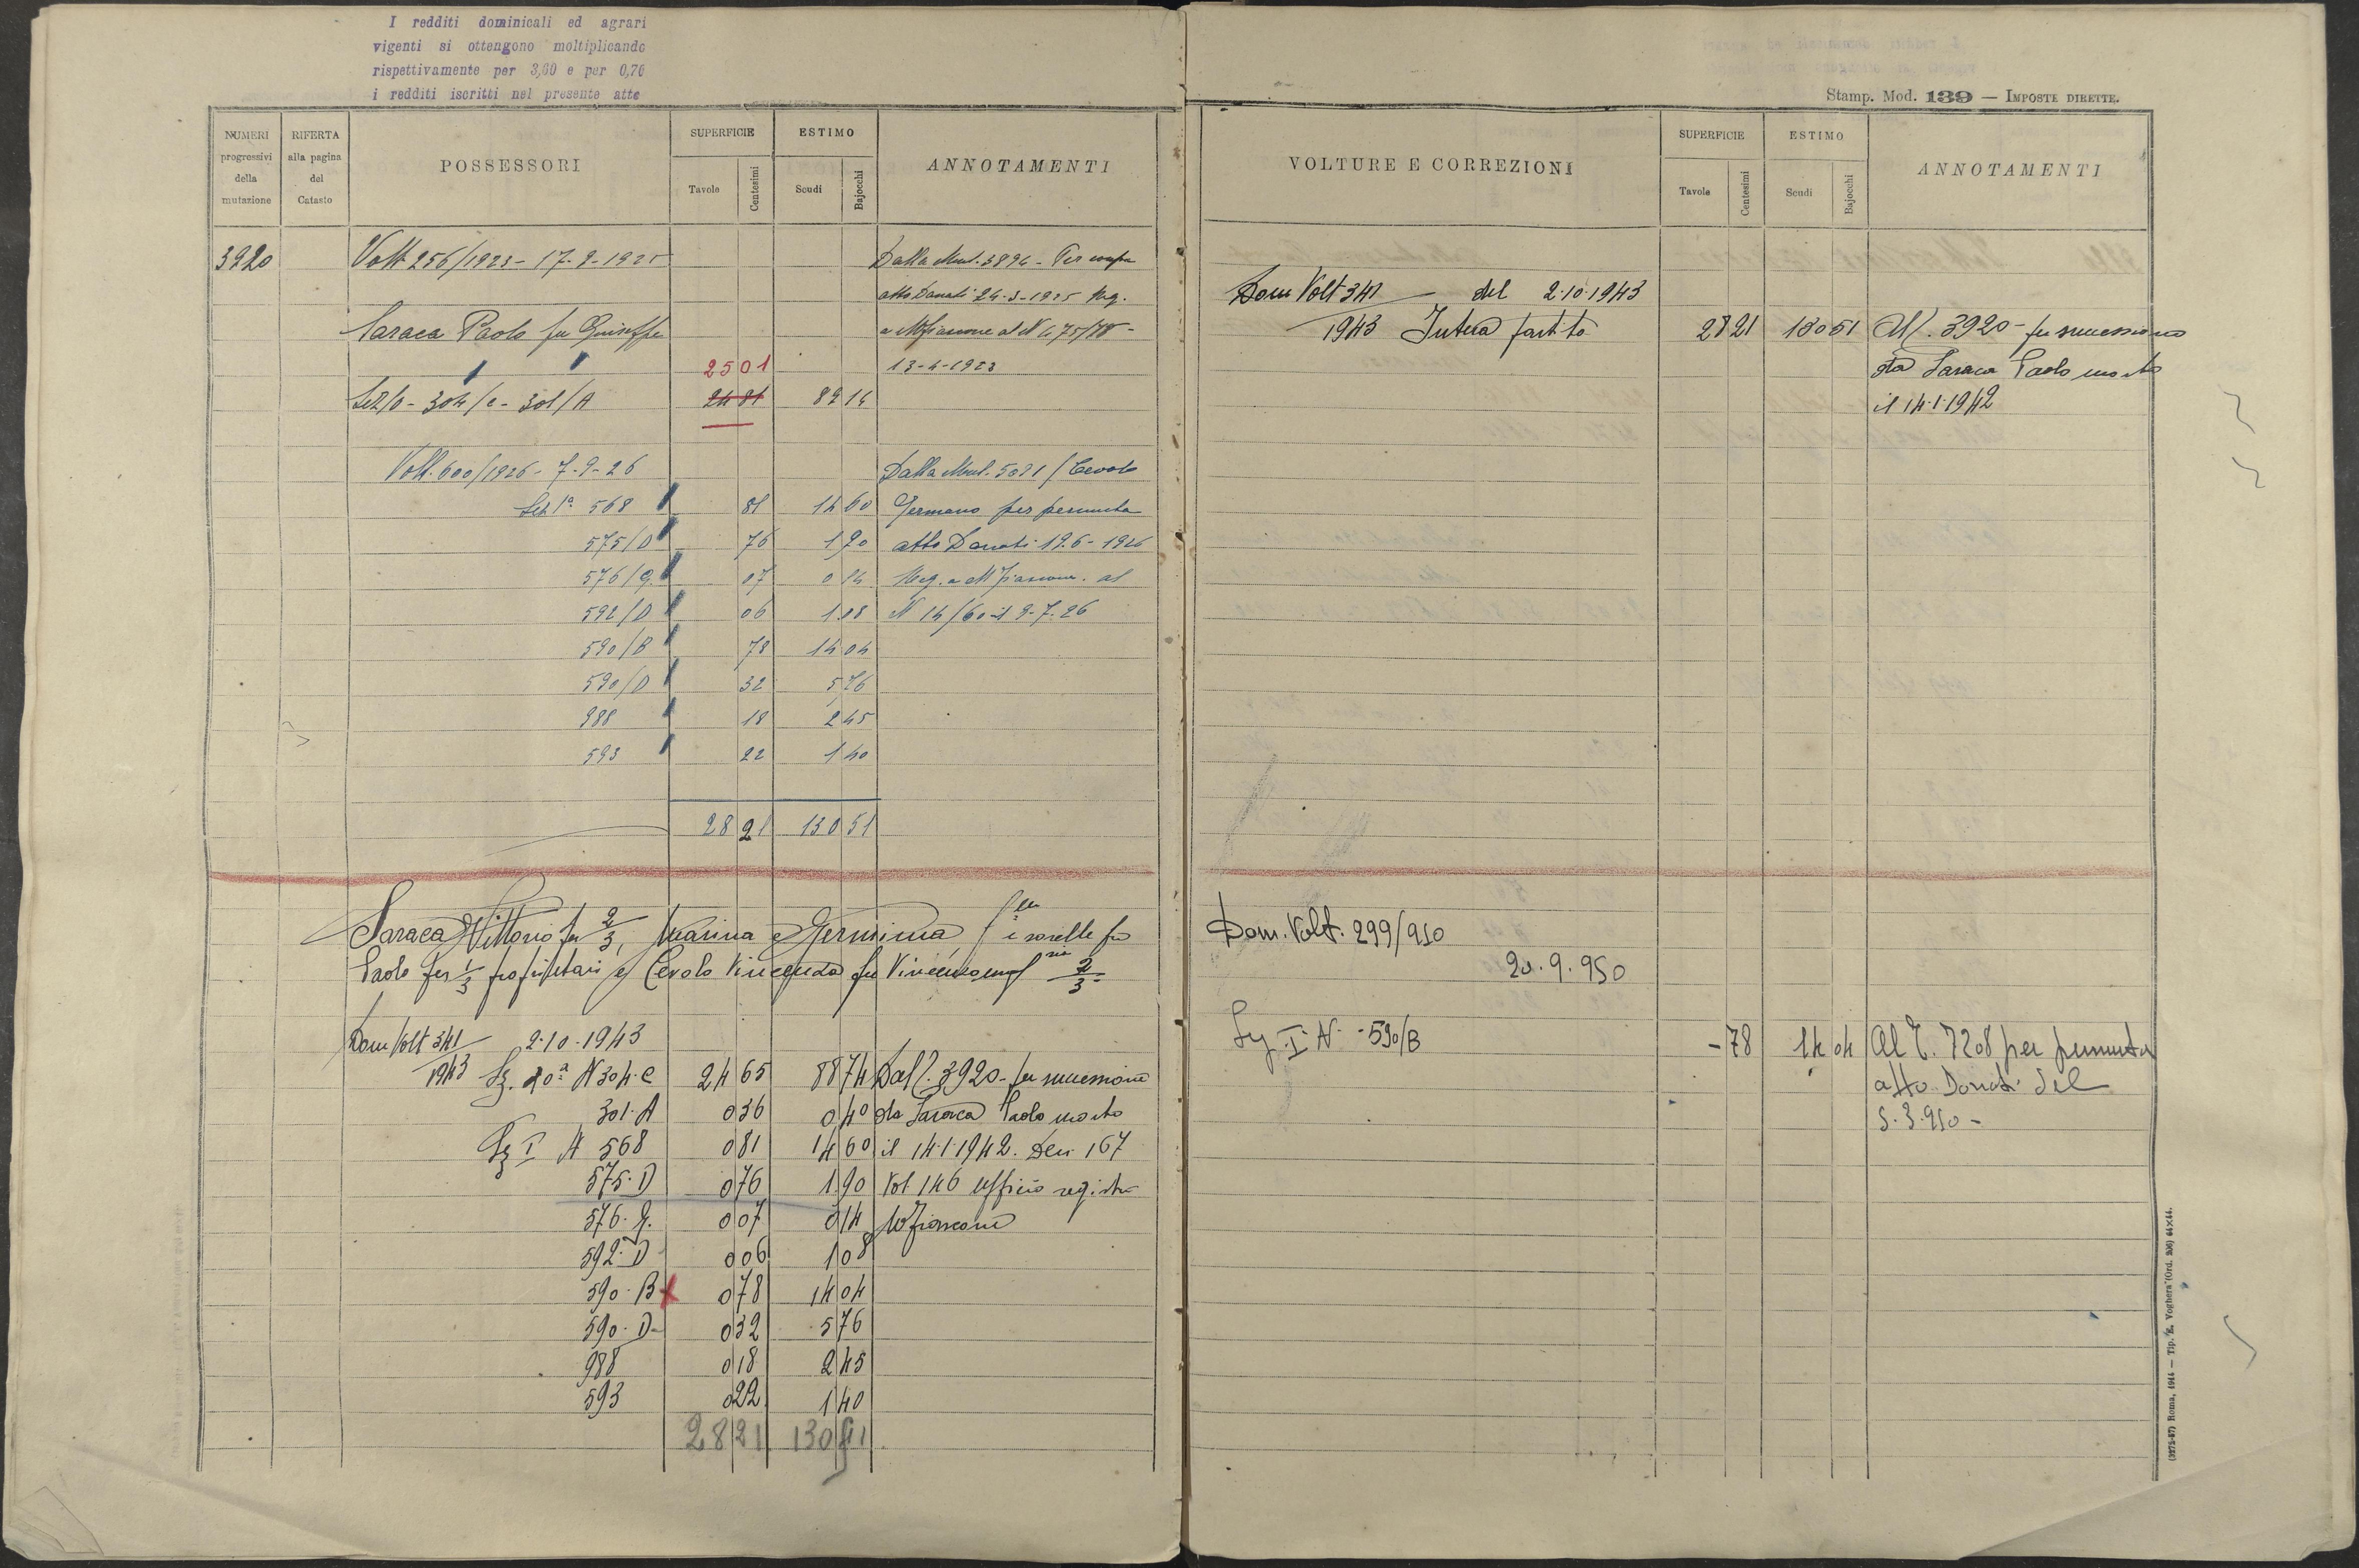 I redditi dominicali ed agrari
vigenti si ottengono moltiplicando
rispettivamente per 3,60 e per 0,70
i redditi iscritti nel presente atto
NUMERI progressivi della mutazione
RIFERTA alla pagina del Catasto
POSSESSORI
SUPERFICIE
Tavole Centesimi
ESTIMO
Scudi Bajocchi
ANNOTAMENTI
3920 Volt 256/1923 - 17-9-1925 Dalla Mut. 3894 - Per
atto Donati 24-3-1925 Reg.
Saraca Paolo fu Giuseppe a Mfiascone al N 475/
2501 13-4-1923
Sez/0 - 304/c - 301/A 2481 89 14
Volt. 600/1926 - 7-9-26 Dalla Mut. 5021 / Cevolo
Sez 1ª 568 81 14 60 Germano per permuta
575/D 76 1 90 atto Donati 19.6-1926
576/g. 07 0 14 Reg. a Mfiascone al
592/D 06 1 08 N 14/60 il 9-7-26
590/B 78 14 04
590/D 32 5 76
988 18 2 45
593 22 1 40
28 21 130 51
Saraca Vittorio per 2/3, Marina e Germina, f.llo e sorelle fu
Paolo per 1/3 proprietari e Cevolo Vincenza fu Vincenzo 2/3-
Dom Volt 341/1943 2-10-1943
Sz. 10ª N 304-c 24 65 88 74 Dal P. 3920 - per successione
301-A 0 36 0 40 da Saraca Paolo morto
Sz I N 568 0 81 14 60 il 14-1-1942. Den 167
575-D 0 76 1 90 Vol 146 ufficio registro
576-g. 0 07 0 14 Mfiascone
592-D 0 06 1 08
590-B x 0 78 14 04
590-D 0 32 5 76
988 0 18 2 45
593 0 22 1 40
28 21 130 51
Stamp. Mod. 139 — IMPOSTE DIRETTE.
VOLTURE E CORREZIONI
SUPERFICIE
Tavole Centesimi
ESTIMO
Scudi Bajocchi
ANNOTAMENTI
Dom Volt 341/1943 del 2-10-1943
Intera partita 28 21 130 51 Al P. 3920 - per successione
da Saraca Paolo morto
il 14-1-1942
Dom. Volt. 299/950
20.9.950
Sz I N -590/B -78 14 04 Al P. 7208 per permuta
atto Donati del
5.3.950-
(3275-87) Roma, 1944 — Tip. "E. Voghera" (Ord. 306) 64×44.